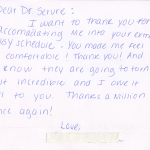 Dear Dr. Servre:
I want to thank you for
accomodating me into your extra
busy schedule. You made me feel
comfortable! Thank you! And
I know they are going to turn
out incredible and I owe it
all to you. Thanks a Million
once again!
Love,